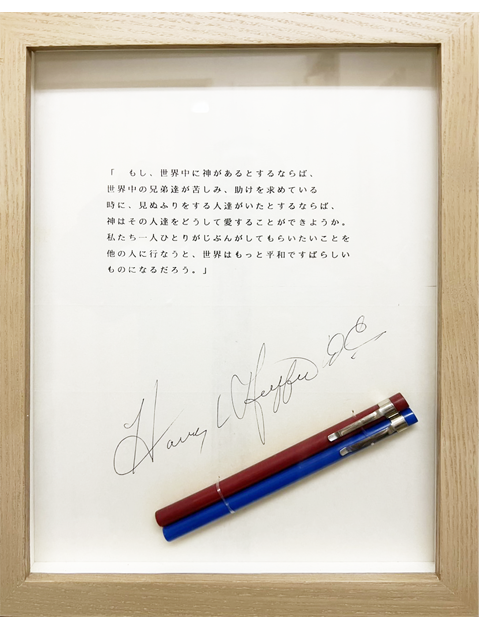 「　もし、世界中に神があるとするならば、
世界中の兄弟達が苦しみ、助けを求めている
時に、見ぬふりをする人達がいたとするならば、
神はその人達をどうして愛することができようか。
私たち一人ひとりがじぶんがしてもらいたいことを
他の人に行なうと、世界はもっと平和ですばらしい
ものになるだろう。」